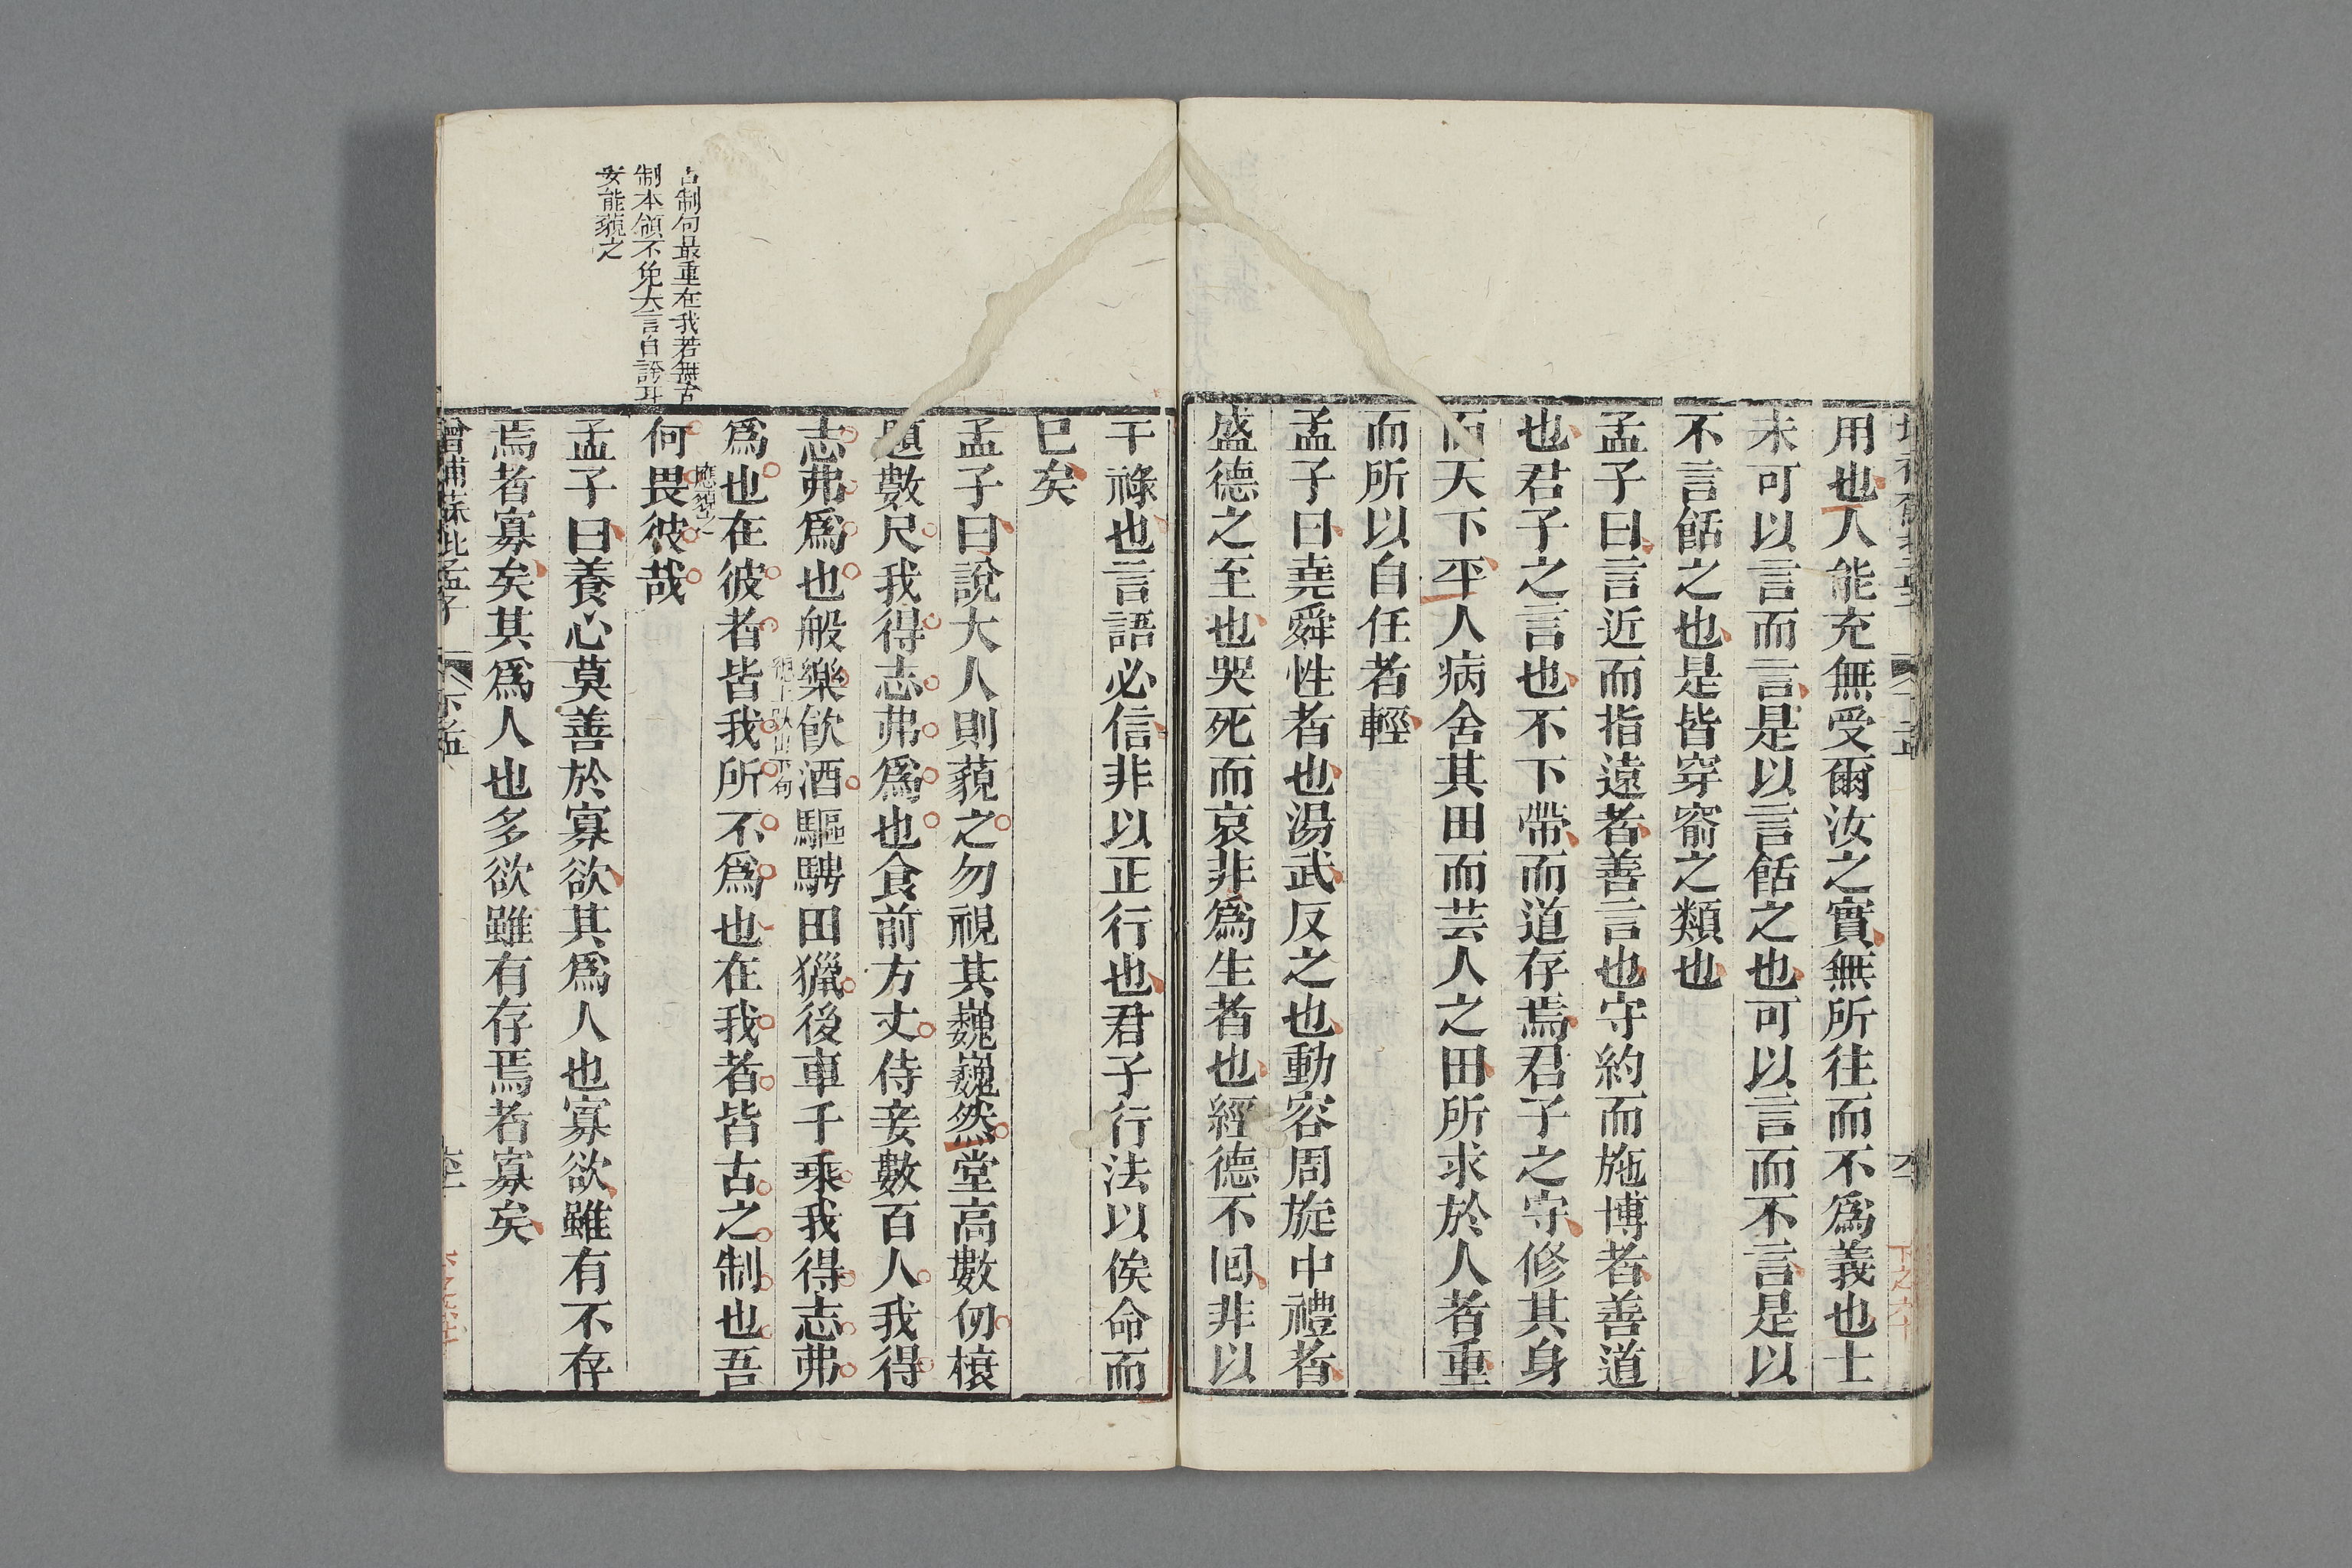 用也人能充無受爾汝之實無所往而不爲義也士
未可以言而言是以言餂之也可以言而不言是以
不言餂之也是皆穿窬之類也
孟子曰言近而指遠者善言也守約而施博者善道
也君子之言也不下帶而道存焉君子之守修其身
而天下平人病舍其田而芸人之田所求於人者重
而所以自任者輕
孟子曰堯舜性者也湯武反之也動容周旋中禮者
盛德之至也哭死而哀非爲生者也經德不回非以
干祿也言語必信非以正行也君子行法以俟命而
已矣
孟子曰說大人則藐之勿視其巍巍然堂高數仞榱
題數尺我得志弗爲也食前方丈侍妾數百人我得
志弗爲也般樂飲酒驅騁田獵後車千乘我得志弗
爲也在彼者皆我所不爲也在我者皆古之制也吾
何畏彼哉
古制句最重在我若無古
制本領不免大言自誇耳
安能藐之
孟子曰養心莫善於寡欲其爲人也寡欲雖有不存
焉者寡矣其爲人也多欲雖有存焉者寡矣
增補蘇批孟子 下孟